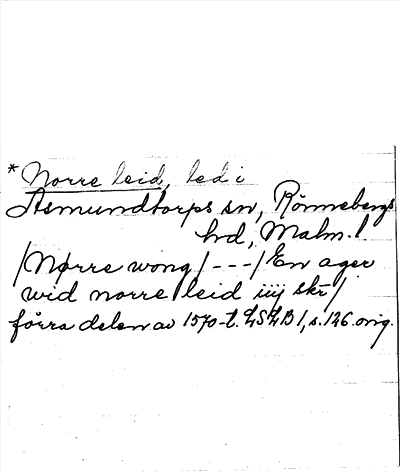 * Norre leid, led i
Asmundtorps sn, Rönnebergs
hd, Malm. l.
/Nørre wong/ - - - / En ager
wid norre leid iiij skr /
förra delen av 1570-t. LSLB 1, s. 126. orig.